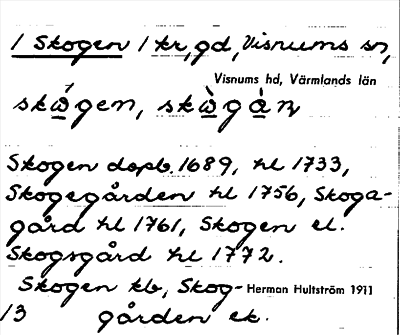 1 Skogen 1 kr, gd, Visnums sn,
Visnums hd, Värmlands län
skώ̲gen, skὼ̲gà̲n
Skogen dopb. 1689, hl 1733,
Skogegården hl 1756, Skoga-
gård hl 1761, Skogen el.
Skogsgård hl 1772.
Skogen kb, Skog- Herman Hultström 1911
13 gården ek.